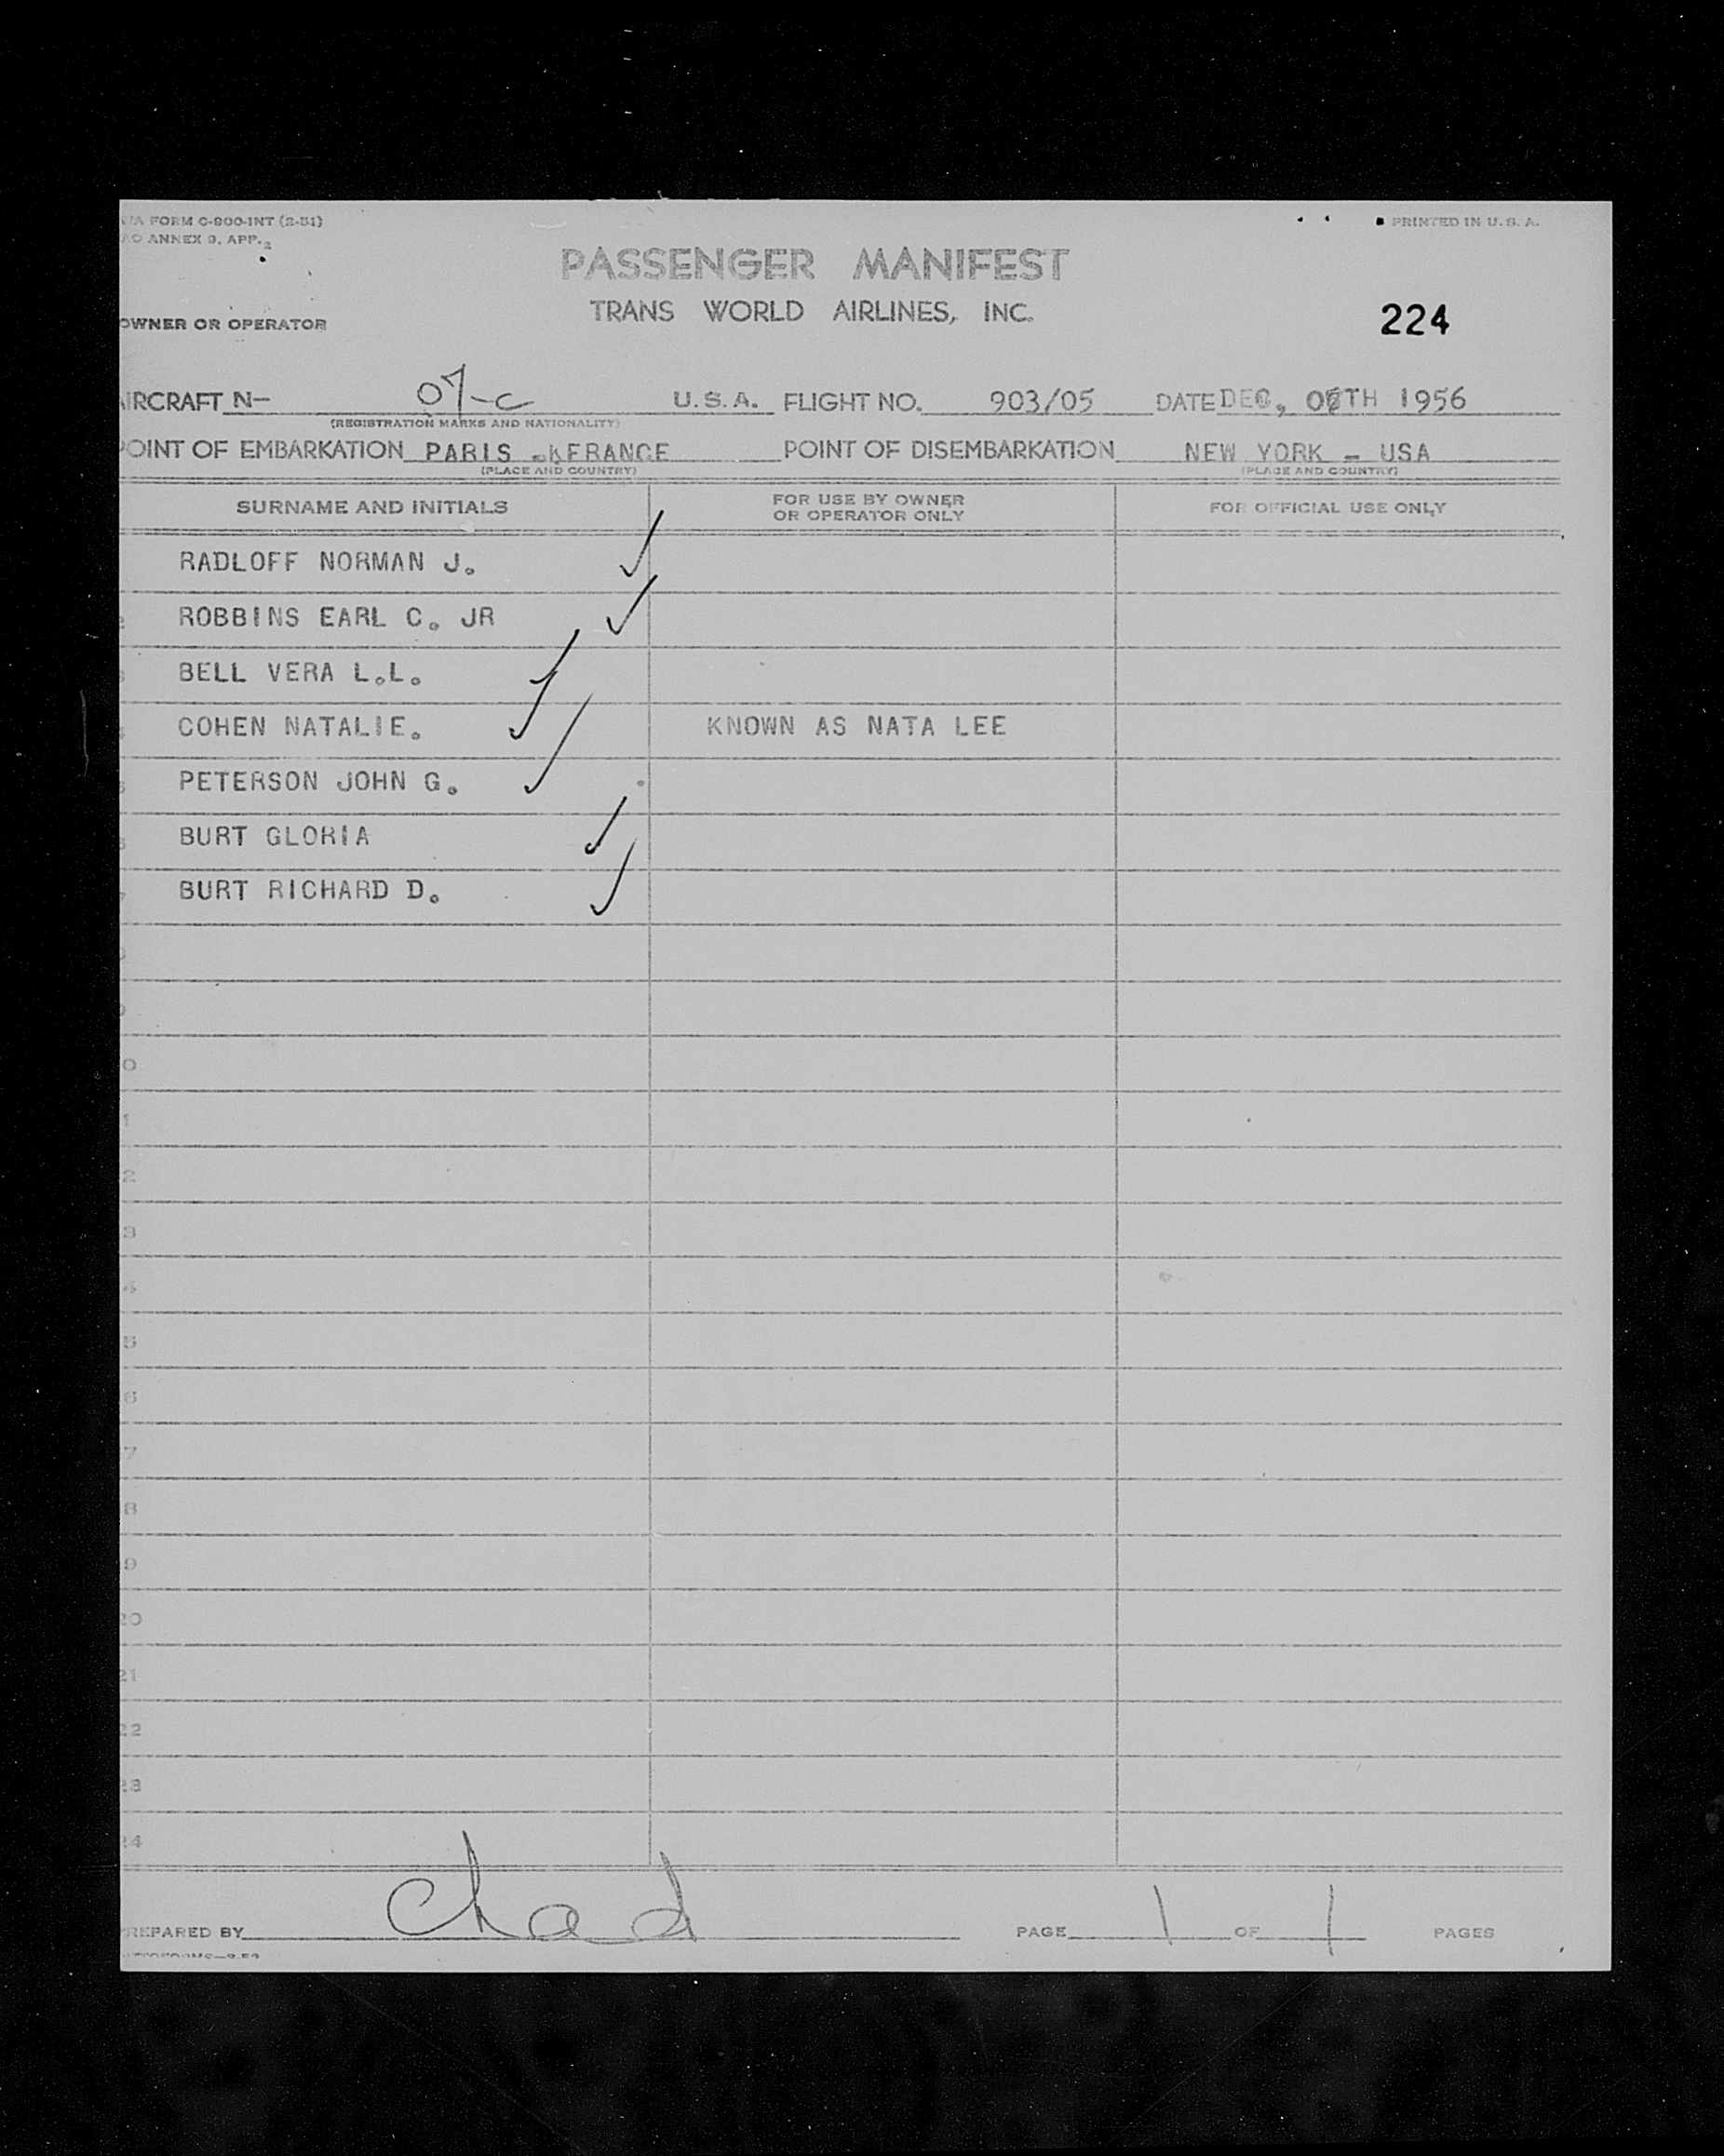 A FORM C-800-INT (2-51)
PRINTED IN U.S.A.
O ANNEX 9, APP. 2
PASSENGER MANIFEST
TRANS WORLD AIRLINES, INC.
224
OWNER OR OPERATOR
AIRCRAFT N- 07-C U.S.A. FLIGHT NO. 903/05 DATE DEC, TH 1956
(REGISTRATION MARKS AND NATIONALITY)
POINT OF EMBARKATION PARIS - FRANCE POINT OF DISEMBARKATION NEW YORK - USA
(PLACE AND COUNTRY) (PLACE AND COUNTRY)
SURNAME AND INITIALS FOR USE BY OWNER OR OPERATOR ONLY FOR OFFICIAL USE ONLY
RADLOFF NORMAN J.
ROBBINS EARL C. JR
BELL VERA L.L.
COHEN NATALIE. KNOWN AS NATA LEE
PETERSON JOHN G.
BURT GLORIA
BURT RICHARD D.
0
1
2
3
4
5
6
7
8
9
20
21
22
23
24
PREPARED BY Chad PAGE 1 OF 1 PAGES